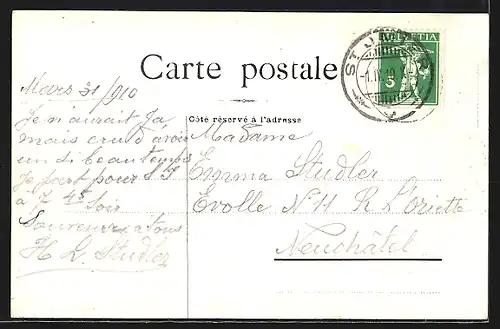 Carte postale
HELVETIA
5
ST. IMIER
Côté réservé à l'adresse
Mars 31/910
Je n'aurait Ja
mais cru d'avoir
un si beau temps
Je part pour S I
à 7 45 Soir
Souvenirs a tous
H L Studler
Madame
Emma Studler
Evolle No 11 R L'Oriette
Neuchâtel